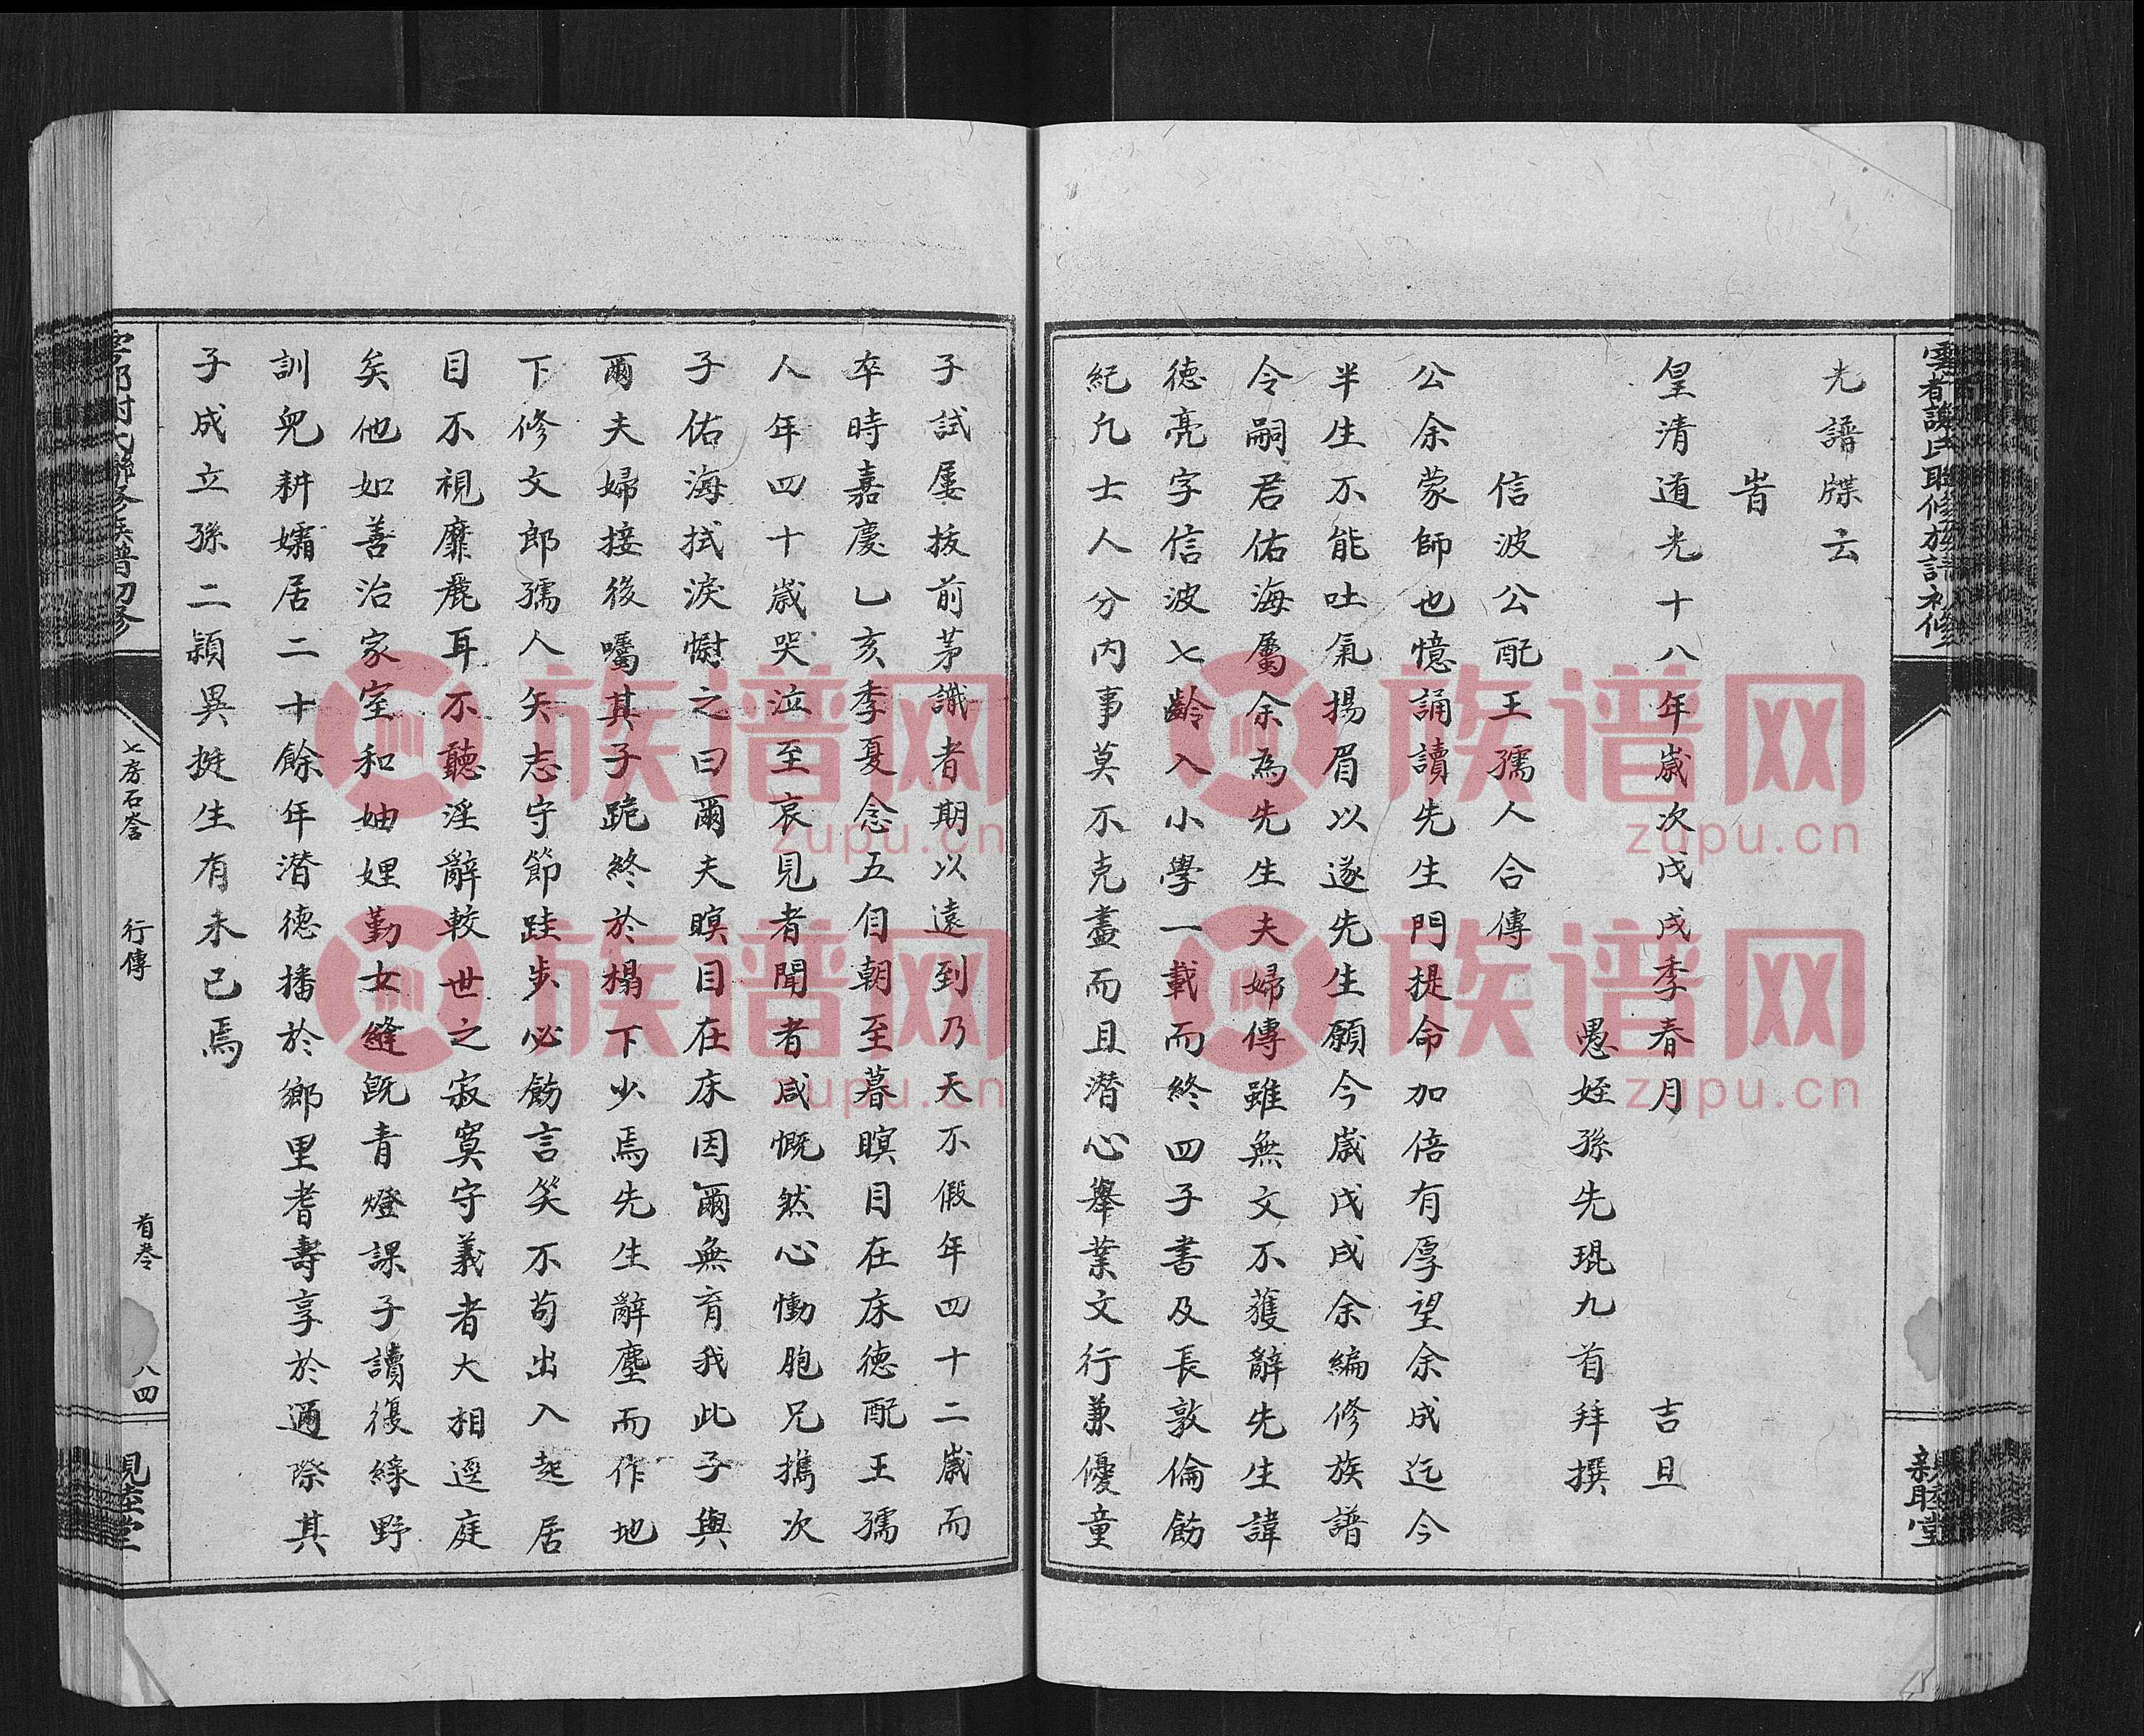 光譜牒云
旹
皇清道光十八年歲次戊戌季春月 吉旦
愚姪孫先琨九首拜撰
信波公配王孺人合傳
公余蒙師也憶誦讀先生門提命加倍有厚望余成迄今
半生不能吐氣揚眉以遂先生願今歲戊戌余編修族譜
令嗣君佑海屬余為先生夫婦傳雖無文不獲辭先生諱
德亮字信波七齡入小學一載而終四子書及長敦倫飭
紀凢士人分內事莫不克盡而且潛心舉業文行兼優童
子試屢拔前茅識者期以遠到乃天不假年四十二歲而
卒時嘉慶乙亥季夏念五自朝至暮瞑目在床德配王孺
人年四十歲哭泣至哀見者聞者咸慨然心慟胞兄攜次
子佑海拭淚慰之曰爾夫瞑目在床因爾無育我此子與
爾夫婦接後囑其子跪終於榻下少焉先生辭塵而作地
下修文郎孺人矢志守節跬步必飭言笑不苟出入起居
目不視靡麗耳不聽淫辭較世之寂寞守義者大相逕庭
矣他如善治家室和妯娌勤女縫旣青燈課子讀復緣野
訓兒耕孀居二十餘年潛德播於鄉里耆壽享於邇際其
子成立孫二穎異挺生有未已焉
七房石崟 行傳 首卷 八四
親睦堂
族谱网
zupu.cn
族谱网
zupu.cn
族谱网
zupu.cn
族谱网
zupu.cn